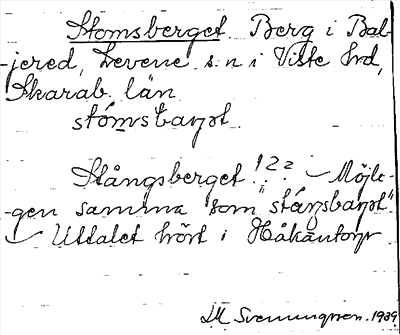 Stomsberget. Berg i Bal-
jered, Levene s.n i Viste hd,
Skarab. län
stómsbaryət.
Stångsberget!?? – Möjli-
gen samma som stáŋsbaryət"
– Uttalet hört i Håkantorp
Svenungsson. 1939